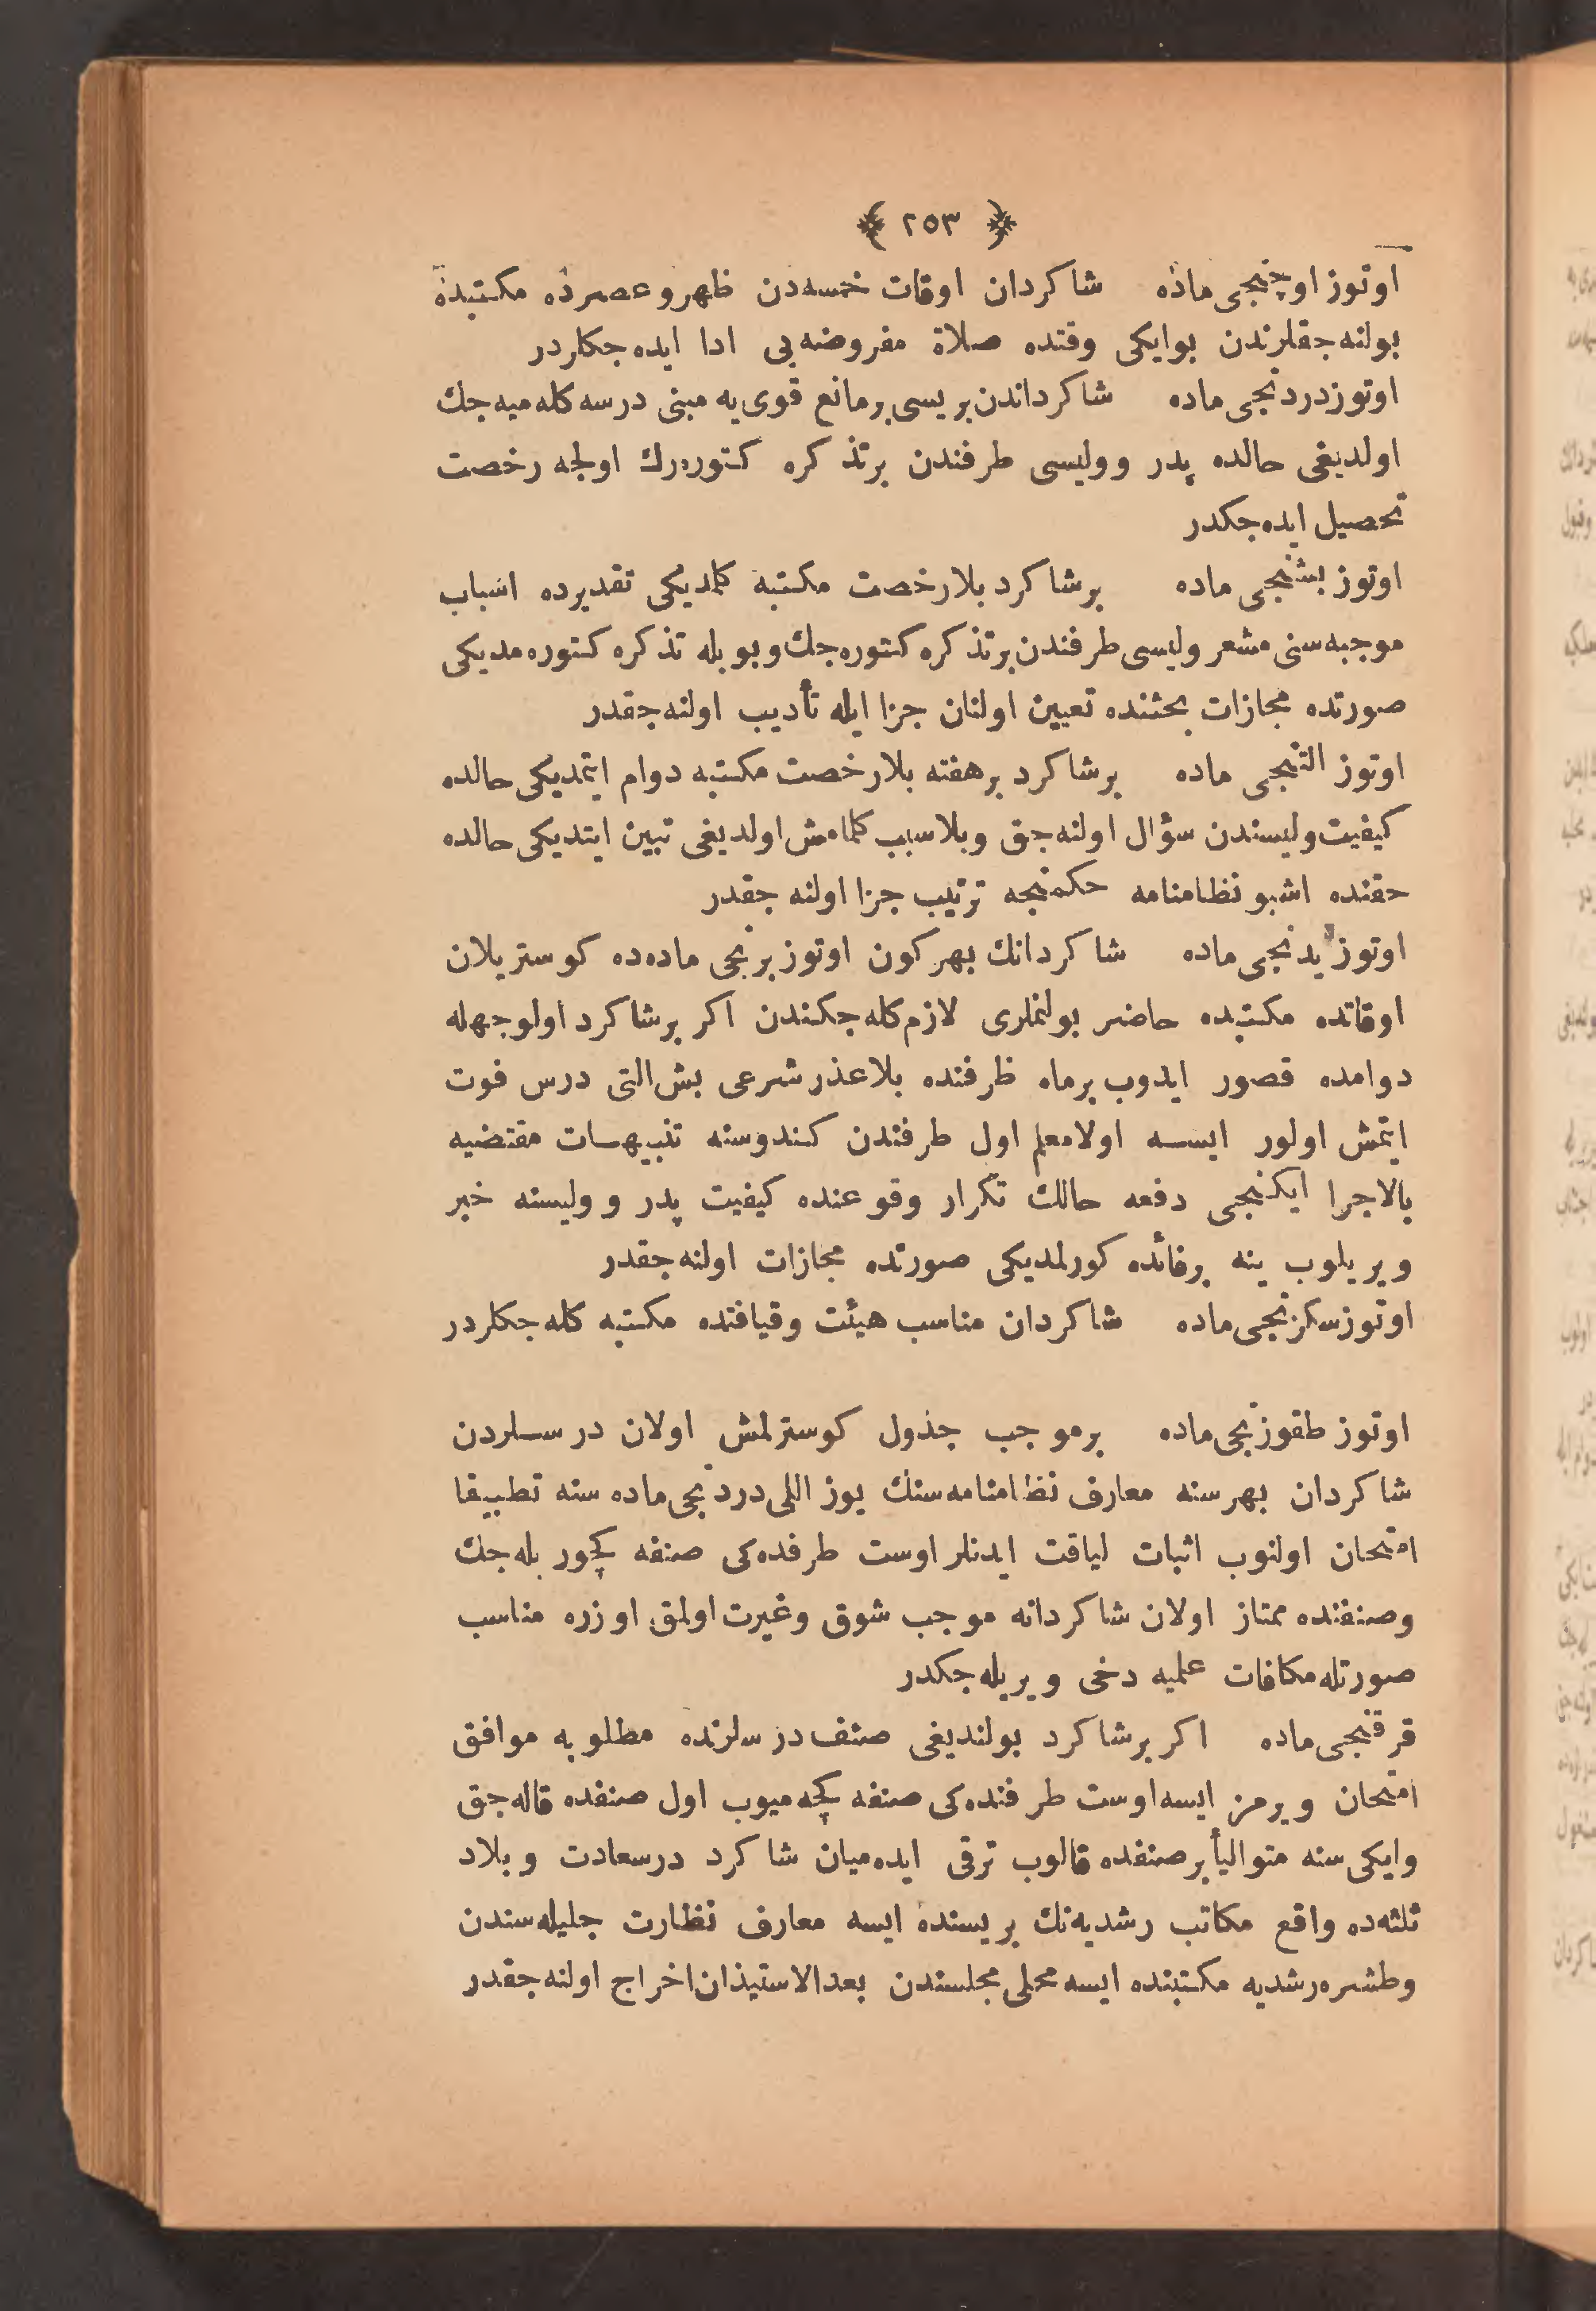 ﴿ ٢٥٣ ﴾
اوتوز اوچنجی ماده شاكردان اوقات خمسه‌دن ظهر و عصرده مكتبده
بولنه‌جقلرندن بو ایكی وقتده صلاة مفروضه‌یی ادا ایده‌جكلردر
اوتوز دردنجی ماده شاكرداندن بریسی بر مانع قوی‌یه مبنی درسه كله‌میه‌جك
اولدیغی حالده پدر و ولیسی طرفندن بر تذكره كتوره‌رك اولجه رخصت
تحصیل ایده‌جكدر
اوتوز بشنجی ماده بر شاكرد بلا رخصت مكتبه كلمدیكی تقدیرده اسباب
موجبه‌سنی مشعر ولیسی طرفندن بر تذكره كتوره‌جك و بویله تذكره كتوره‌مدیكی
صورتده مجازات بحثنده تعیین اولنان جزا ایله تأدیب اولنه‌جقدر
اوتوز التنجی ماده بر شاكرد بر هفته بلا رخصت مكتبه دوام ایتمدیكی حالده
كیفیت ولیسندن سؤال اولنه‌جق و بلا سبب كلمامش اولدیغی تبین ایتدیكی حالده
حقنده اشبو نظامنامه حكمنجه ترتیب جزا اولنه‌جقدر
اوتوز یدنجی ماده شاكردانك بهر كون اوتوز برنجی ماده‌ده كوستریلان
اوقاتده مكتبده حاضر بولنملری لازم كله‌جكندن اكر بر شاكرد اولوجهله
دوامده قصور ایدوب بر ماه ظرفنده بلا عذر شرعی بش التی درس فوت
ایتمش اولور ایسه اولا معلم اول طرفندن كندوسنه تنبیهات مقتضیه
بالاجرا ایكنجی دفعه حالك تكرار وقوعنده كیفیت پدر و ولیسنه خبر
ویریلوب ینه بر فائده كورلمدیكی صورتده مجازات اولنه‌جقدر
اوتوز سكزنجی ماده شاكردان مناسب هیئت و قیافتده مكتبه كله‌جكلردر
اوتوز طقوزنجی ماده بر موجب جدول كوسترلمش اولان درسلردن
شاكردان بهر سنه معارف نظامنامه‌سنك یوز اللی دردنجی ماده‌سنه تطبیقا
امتحان اولنوب اثبات لیاقت ایدنلر اوست طرفده‌كی صنفه كچوریله‌جك
و صنفنده ممتاز اولان شاكردانه موجب شوق و غیرت اولمق اوزره مناسب
صورتله مكافات علمیه دخی ویریله‌جكدر
قرقنجی ماده اكر بر شاكرد بولندیغی صنف درسلرنده مطلوبه موافق
امتحان ویرمز ایسه اوست طرفنده‌كی صنفه كچه‌میوب اول صنفده قاله‌جق
و ایكی سنه متوالیاً بر صنفده قالوب ترقی ایده‌میان شاكرد درسعادت و بلاد
ثلثه‌ده واقع مكاتب رشدیه‌نك بریسنده ایسه معارف نظارت جلیله‌سندن
و طشره رشدیه مكتبنده ایسه محلی مجلسندن بعدالاستیذان اخراج اولنه‌جقدر